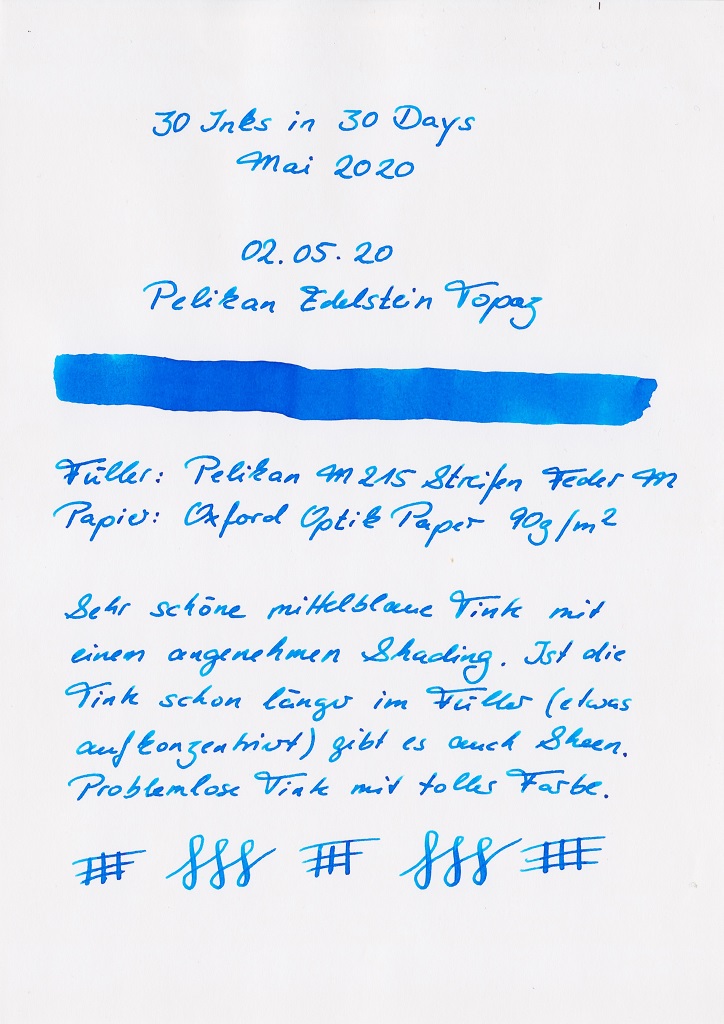 30 Inks in 30 Days
Mai 2020
02.05.20
Pelikan Edelstein Topaz
Füller: Pelikan M215 Streifen Feder M
Papier: Oxford Optik Paper 90g/m²
Sehr schöne mittelblaue Tinte mit
einem angenehmen Shading. Ist die
Tinte schon länger im Füller (etwas
aufkonzentriert) gibt es auch Sheen.
Problemlose Tinte mit toller Farbe.